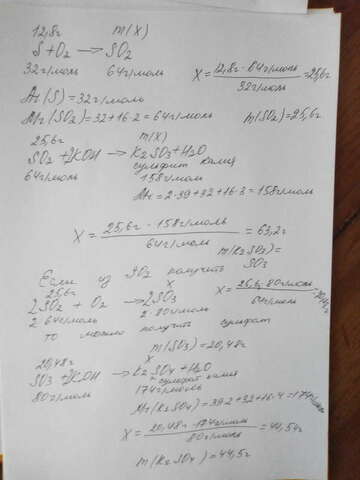 12,8г m(X)
S + O2 → SO2
32г/моль 64г/моль
X = 12,8г · 64г/моль / 32г/моль = 25,6г
Ar(S) = 32г/моль
Mr(SO2) = 32 + 16·2 = 64г/моль m(SO2) = 25,6г
25,6г m(X)
SO2 + 2KOH → K2SO3 + H2O
сульфит калия
64г/моль 158г/моль
Mr = 2·39 + 32 + 16·3 = 158г/моль
X = 25,6г · 158г/моль / 64г/моль = 63,2г
m(K2SO3) =
Если из SO2 получить SO3
25,6г X
2SO2 + O2 → 2SO3
2·64г/моль 2·80г/моль
X = 25,6·80г/моль / 64г/моль =
то можно получить сульфат
m(SO3) = 20,48г
20,48г X
SO3 + 2KOH → K2SO4 + H2O
сульфат калия
80г/моль 174г/моль
Mr(K2SO4) = 39·2 + 32 + 16·4 = 174г/моль
X = 20,48г · 174г/моль / 80г/моль = 44,54г
m(K2SO4) = 44,5г